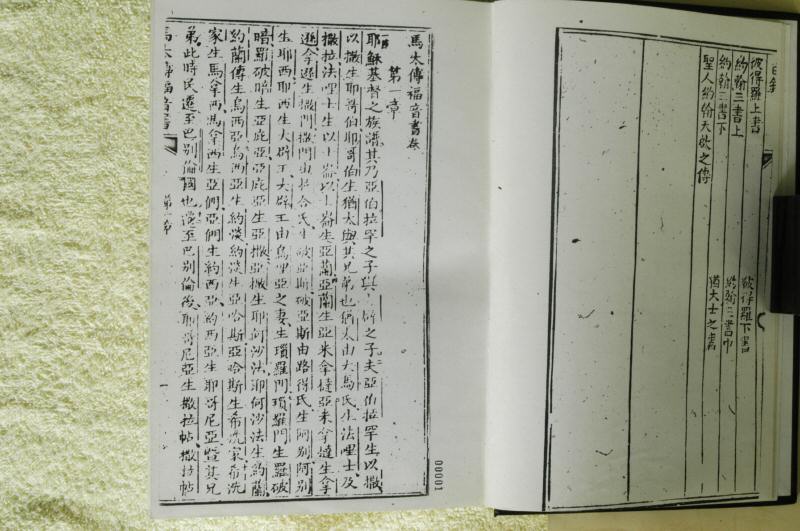 目錄
彼得羅上書
彼得羅下書
約翰三書上
約翰三書中
約翰三書下
猶大士之書
聖人約翰天啟之傳
馬太傳福音書卷
第一章
耶穌基督之族譜其乃亞伯拉罕之子與大辟之子夫亞伯拉罕生以撒
以撒生耶哥伯耶哥伯生猶大與其兄弟也猶大由大馬氏生法哩士及
撒拉法哩士生以士崙以士崙生亞蘭亞蘭生亞米拿撻亞米拿撻生拿
遜拿遜生撒門撒門由拉合氏生破亞斯破亞斯由路得氏生阿別阿別
生耶西耶西生大辟王大辟王由烏哩亞之妻生瑣羅門瑣羅門生羅破
暗羅破暗生亞庇亞亞庇亞生亞撒亞撒生耶何沙法耶何沙法生約蘭
約蘭傳生烏西亞烏西亞生約淡約淡生亞哈斯亞哈斯生希洗家希洗
家生馬拿西馬拿西生亞們亞們生約西亞約西亞生耶哥尼亞暨其兄
弟此時民遷至巴別倫國也遷至巴別倫後耶哥尼亞生撒拉帖撒拉帖
馬太傳福音書
第一章
一
00001